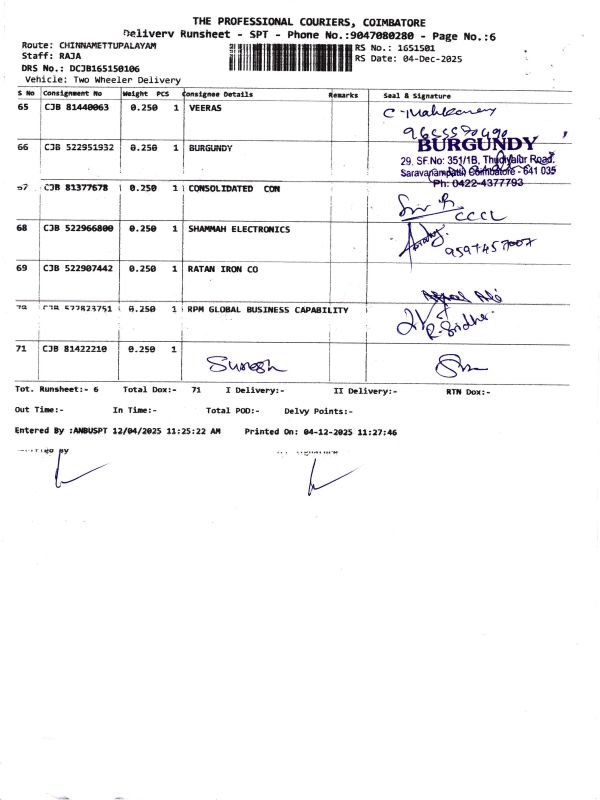 THE PROFESSIONAL COURIERS, COIMBATORE
Delivery Runsheet - SPT - Phone No.:9047080280 - Page No.:6
Route: CHINNAMETTUPALAYAM
RS No.: 1651501
Staff: RAJA
RS Date: 04-Dec-2025
DRS No.: DCJB165150106
Vehicle: Two Wheeler Delivery
S No Consignment No Weight PCS Consignee Details Remarks Seal & Signature
65 CJB 81440063 0.250 1 VEERAS
66 CJB 522951932 0.250 1 BURGUNDY
BURGUNDY
29, SF.No: 351/1B, Thudiyalur Road,
Saravanampatti, Coimbatore - 641 035
Ph: 0422-4377793
67 CJB 81377678 0.250 1 CONSOLIDATED CON
CCCL
68 CJB 522966800 0.250 1 SHAMMAH ELECTRONICS
9597457007
69 CJB 522907442 0.250 1 RATAN IRON CO
70 CJB 522823751 0.250 1 RPM GLOBAL BUSINESS CAPABILITY
R. Sridhar
71 CJB 81422210 0.250 1
Suresh
Tot. Runsheet:- 6 Total Dox:- 71 I Delivery:- II Delivery:- RTN Dox:-
Out Time:- In Time:- Total POD:- Delvy Points:-
Entered By :ANBUSPT 12/04/2025 11:25:22 AM Printed On: 04-12-2025 11:27:46